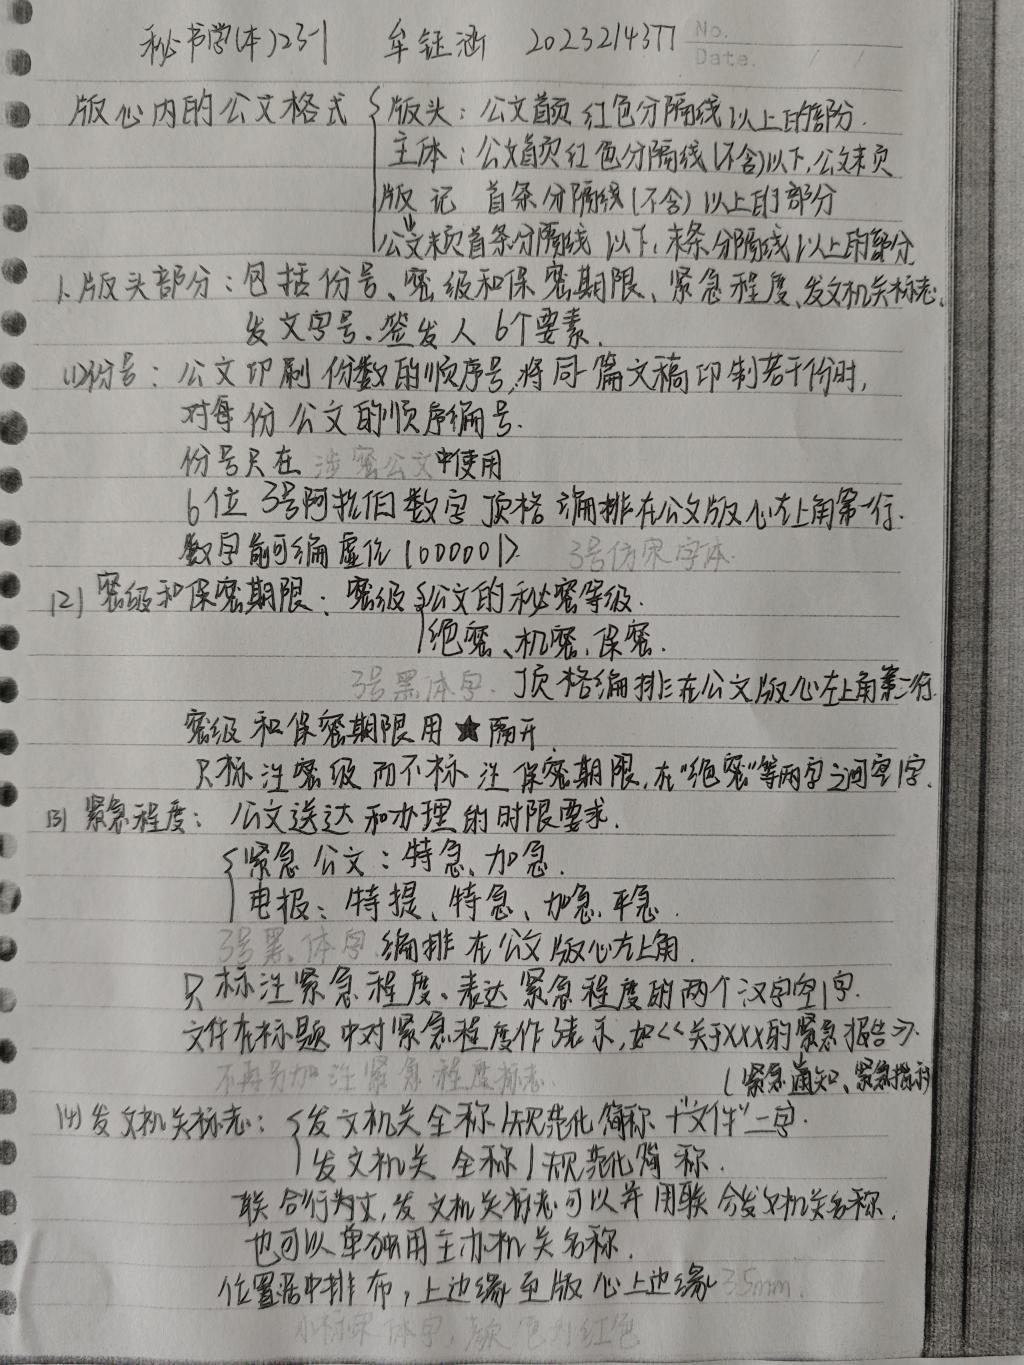 秘书学(本)23-1 牟钰涵 2023214377 No.
Date. / /
版心内的公文格式 { 版头：公文首页红色分隔线以上的部份.
主体：公文首页红色分隔线(不含)以下,公文末页
版记 首条分隔线(不含)以上的部分
公文末页首条分隔线以下,末条分隔线以上的部分
1.版头部分：包括份号、密级和保密期限、紧急程度、发文机关标志、
发文字号、签发人 6个要素.
(1)份号：公文印刷份数的顺序号,将同一篇文稿印制若干份时,
对每份公文的顺序编号.
份号只在涉密公文中使用
6位 3号阿拉伯数字 顶格编排在公文版心左上角第一行.
数字前可编虚位(000001). 3号仿宋字体.
(2)密级和保密期限：密级 { 公文的秘密等级.
绝密、机密、保密.
3号黑体字. 顶格编排在公文版心左上角第二行.
密级和保密期限用★隔开
只标注密级而不标注保密期限,在"绝密"等两字之间空1字.
(3)紧急程度：公文送达和办理的时限要求.
{ 紧急公文：特急、加急.
电报：特提、特急、加急、平急.
3号黑体字 编排在公文版心左上角.
只标注紧急程度、表达紧急程度的两个汉字空1字.
文件在标题中对紧急程度作了表示,如<<关于XXX的紧急报告>>.
不再另加注紧急程度标志. (紧急通知、紧急指示)
(4)发文机关标志：{ 发文机关全称/规范化简称+"文件"二字.
发文机关全称/规范化简称.
联合行文,发文机关标志可以并用联合发文机关名称.
也可以单独用主办机关名称.
位置居中排布,上边缘至版心上边缘35mm.
小标宋体字,颜色为红色